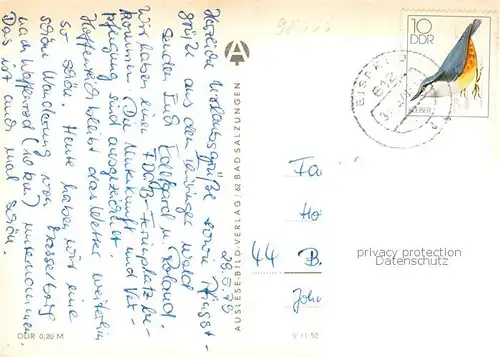 28.5.79
Herzliche Urlaubsgrüße sowie Pfingst-
grüße aus dem Thüringer Wald
senden Euch Edelgard u. Roland.
Wir haben einen FDGB-Ferienplatz be-
kommen. Die Unterkunft und Ver-
pflegung sind ausgezeichnet.
Hoffentlich bleibt das Wetter weiterhin
so schön. Heute haben wir eine
schöne Wanderung von Masserberg
nach (10 km) unternommen.
Das ist auch mal schön.
DDR 0,20 M
AUSLESE-BILD-VERLAG / 62 BAD SALZUNGEN
A
V 11 50
10
DDR
KLEIBER
EISFELD
612
Fa
Ho
44 B
Joh
privacy protection
Datenschutz